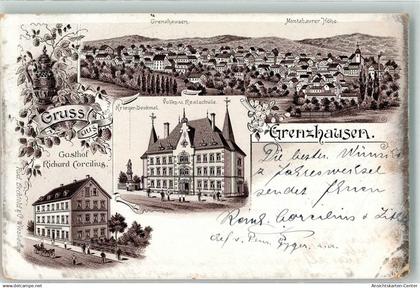 Grenzhausen.
Montabaurer Höhe.
Gruss
aus
Krieger-Denkmal.
Volks u. Realschule.
Grenzhausen.
Gasthof
Richard Corcilius.
Die besten Wünsche
z. Jahreswechsel
sendet Ihnen
Corcilius u.